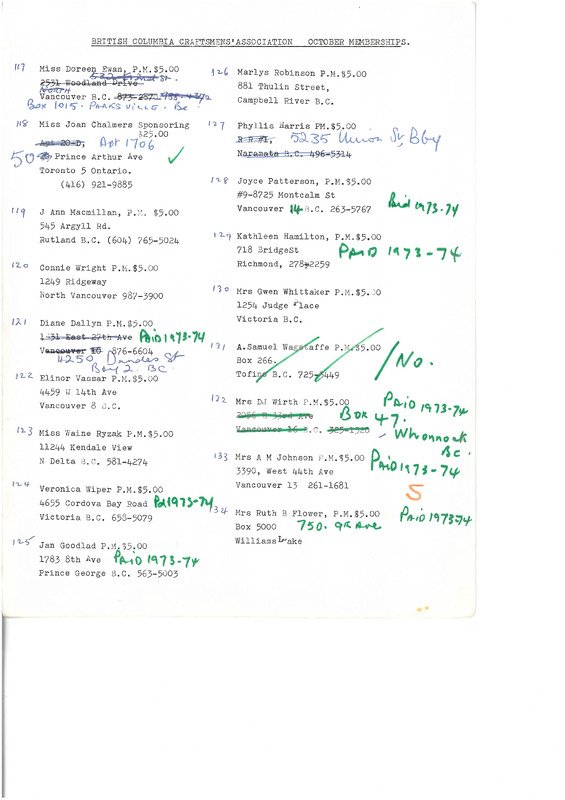 BRITISH COLUMBIA CRAFTSMEN'S ASSOCIATION OCTOBER MEMBERSHIPS.
117 Miss Doreen Ewan, P.M.$5.00
2531 Woodland Drive
North
Vancouver B.C. 873-2872
Box 1015. Parksville. Bc.
118 Miss Joan Chalmers Sponsoring
$25.00
Apt 20-D, Apt 1706
50 Prince Arthur Ave
Toronto 5 Ontario.
(416) 921-9885
119 J Ann Macmillan, P.M. $5.00
545 Argyll Rd.
Rutland B.C. (604) 765-5024
120 Connie Wright P.M.$5.00
1249 Ridgeway
North Vancouver 987-3900
121 Diane Dallyn P.M.$5.00
1531 East 27th Ave PAID 1973-74
Vancouver 10 876-6604
4250 Dundas St
Bby 2. BC
122 Elinor Vassar P.M.$5.00
4459 W 14th Ave
Vancouver 8 B.C.
123 Miss Waine Ryzak P.M.$5.00
11244 Kendale View
N Delta B.C. 581-4274
124 Veronica Wiper P.M.$5.00
4655 Cordova Bay Road Pd 1973-74
Victoria B.C. 658-5079
125 Jan Goodlad P.M.$5.00
1783 8th Ave PAID 1973-74
Prince George B.C. 563-5003
126 Marlys Robinson P.M.$5.00
881 Thulin Street,
Campbell River B.C.
127 Phyllis Harris PM.$5.00
R R #1, 5235 Union St, Bby
Narazata B.C. 496-5314
128 Joyce Patterson, P.M.$5.00
#9-8725 Montcalm St
Vancouver 14 B.C. 263-5767 Paid 1973-74
129 Kathleen Hamilton, P.M.$5.00
718 BridgeSt PAID 1973-74
Richmond, 278-2259
130 Mrs Gwen Whittaker P.M.$5.00
1254 Judge Place
Victoria B.C.
131 A.Samuel Wagstaffe P.M.$5.00
Box 266. / No.
Tofino B.C. 725-3449
132 Mrs DJ Wirth P.M.$5.00 PAID 1973-74
2056 W 33rd Ave Box 47.
Vancouver 16 B.C. 325-1520 - Whonnock
BC.
133 Mrs A M Johnson P.M.$5.00 PAID 1973-74
3390, West 44th Ave
Vancouver 13 261-1681
5
134 Mrs Ruth B Flower, P.M.$5.00 PAID 1973-74
Box 5000 750. 9th Ave
Williams Lake